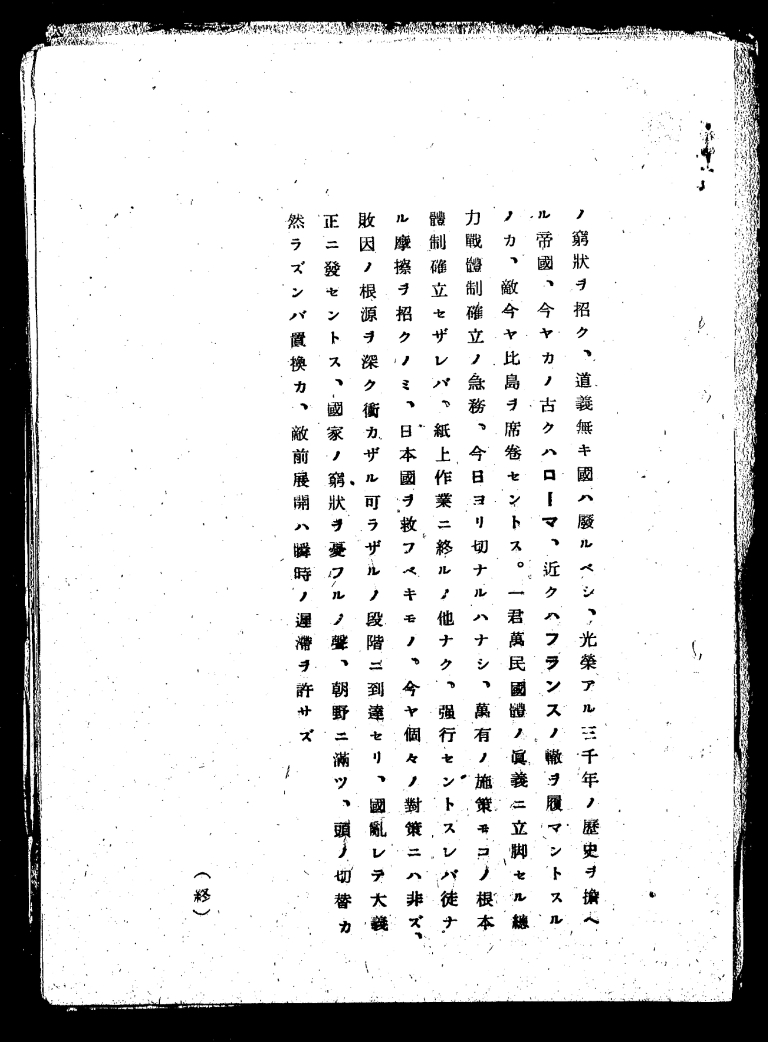 ノ窮狀ヲ招ク、道義無キ國ハ廢ルベシ、光榮アル三千年ノ歷史ヲ擔ヘ
ル帝國、今ヤカノ古クハローマ、近クハフランスノ轍ヲ履マントスル
ノカ、敵今ヤ比島ヲ席卷セントス。一君萬民國體ノ眞義ニ立脚セル總
力戰體制確立ノ急務、今日ヨリ切ナルハナシ、萬有ノ施策モコノ根本
體制確立セザレバ、紙上作業ニ終ルノ他ナク、强行セントスレバ徒ナ
ル摩擦ヲ招クノミ、日本國ヲ救フベキモノ、今ヤ個々ノ對策ニハ非ズ、
敗因ノ根源ヲ深ク衝カザル可ラザルノ段階ニ到達セリ、國亂レテ大義
正ニ發セントス、國家ノ窮狀ヲ憂フルノ聲、朝野ニ滿ツ、頭ノ切替カ
然ラズンバ置換カ、敵前展開ハ瞬時ノ遲滯ヲ許サズ
（終）